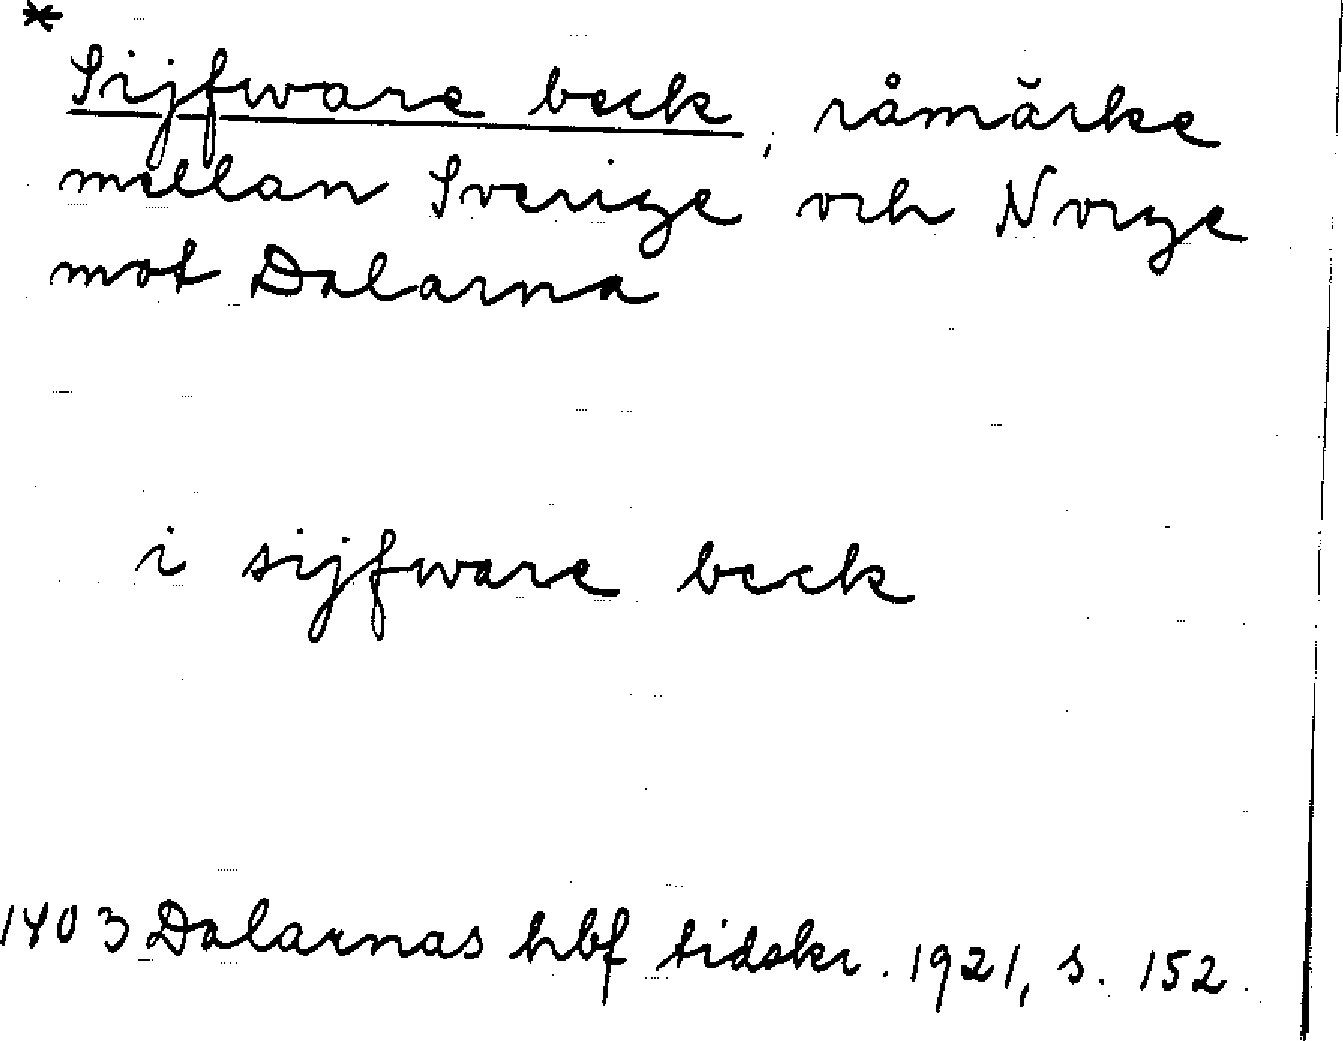 *
Sijfware beck, råmärke
mellan Sverige och Norge
mot Dalarna
i sijfware beck
1403 Dalarnas hbf tidskr. 1921, s. 152.